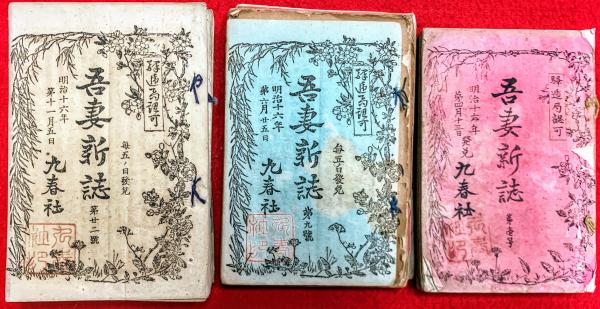 驛逓局認可
毎五ノ日發兌
吾妻新誌
第廿二號
明治十六年
第十一月五日
九春社
驛逓局認可
毎五ノ日發兌
吾妻新誌
第九號
明治十六年
第六月廿五日
九春社
驛逓局認可
吾妻新誌
明治十六年
發兌
九春社